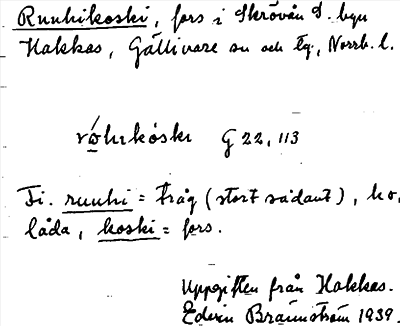 Ruuhikoski, fors i Skrövån S. byn
Hakkas, Gällivare sn och tg, Norrb. l.
róhikóski G 22, 113
Fi. ruuhi = tråg (stort sådant), ho,
låda, koski = fors.
Uppgiften från Hakkas.
Edvin Brännström 1939.